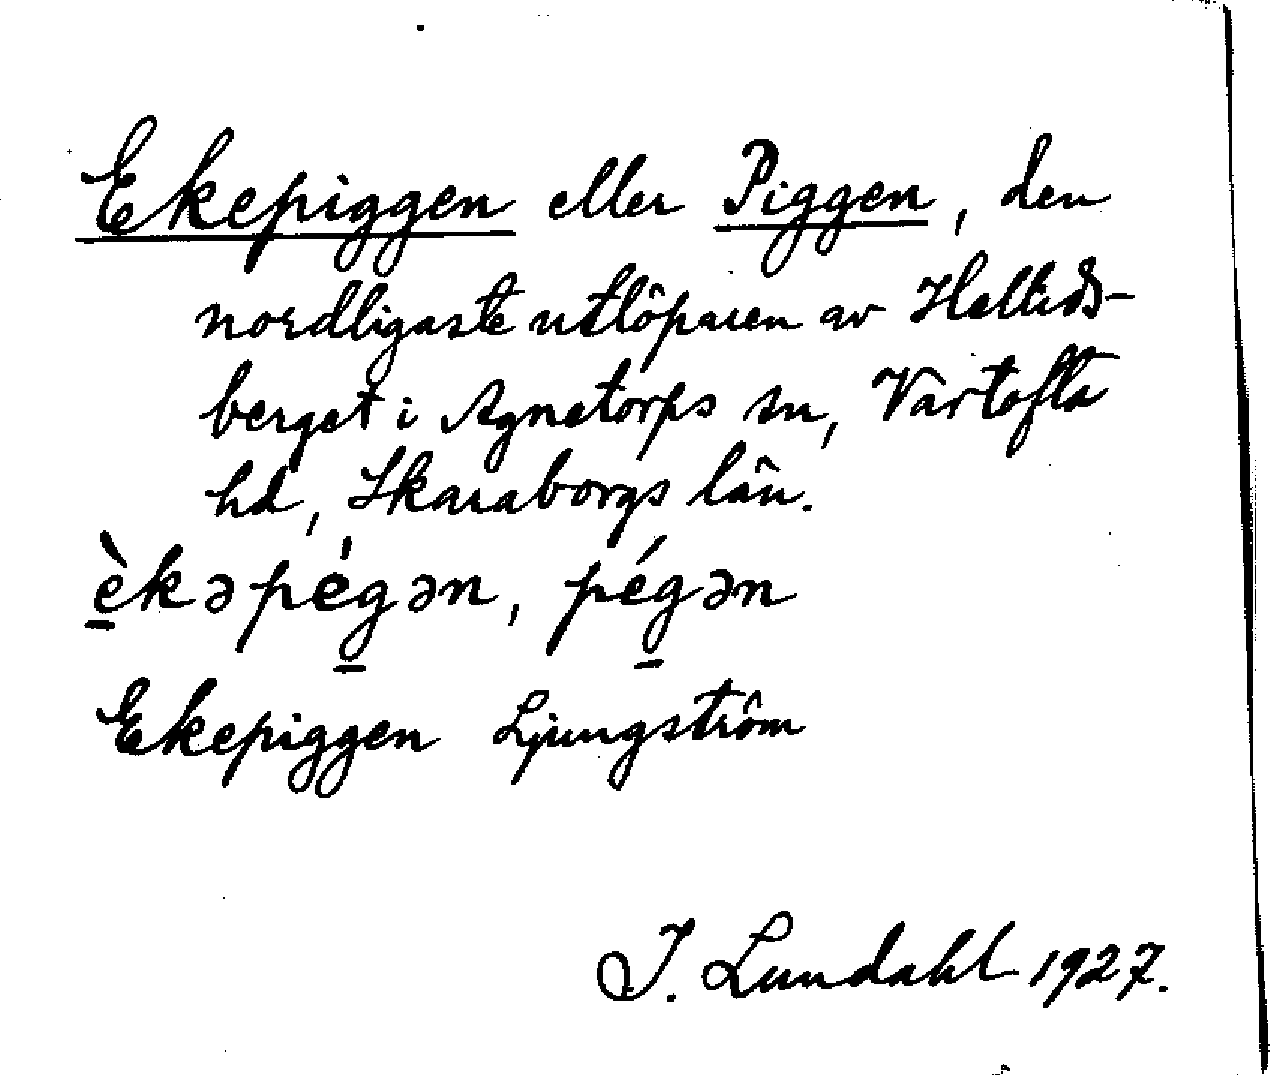 Ekepiggen eller Piggen, den
nordligaste utlöparen av Hellids-
berget i Agnetorps sn, Vartofta
hd, Skaraborgs län.
èkəpégən, pégən
Ekepiggen Ljungström
I. Lundahl 1927.